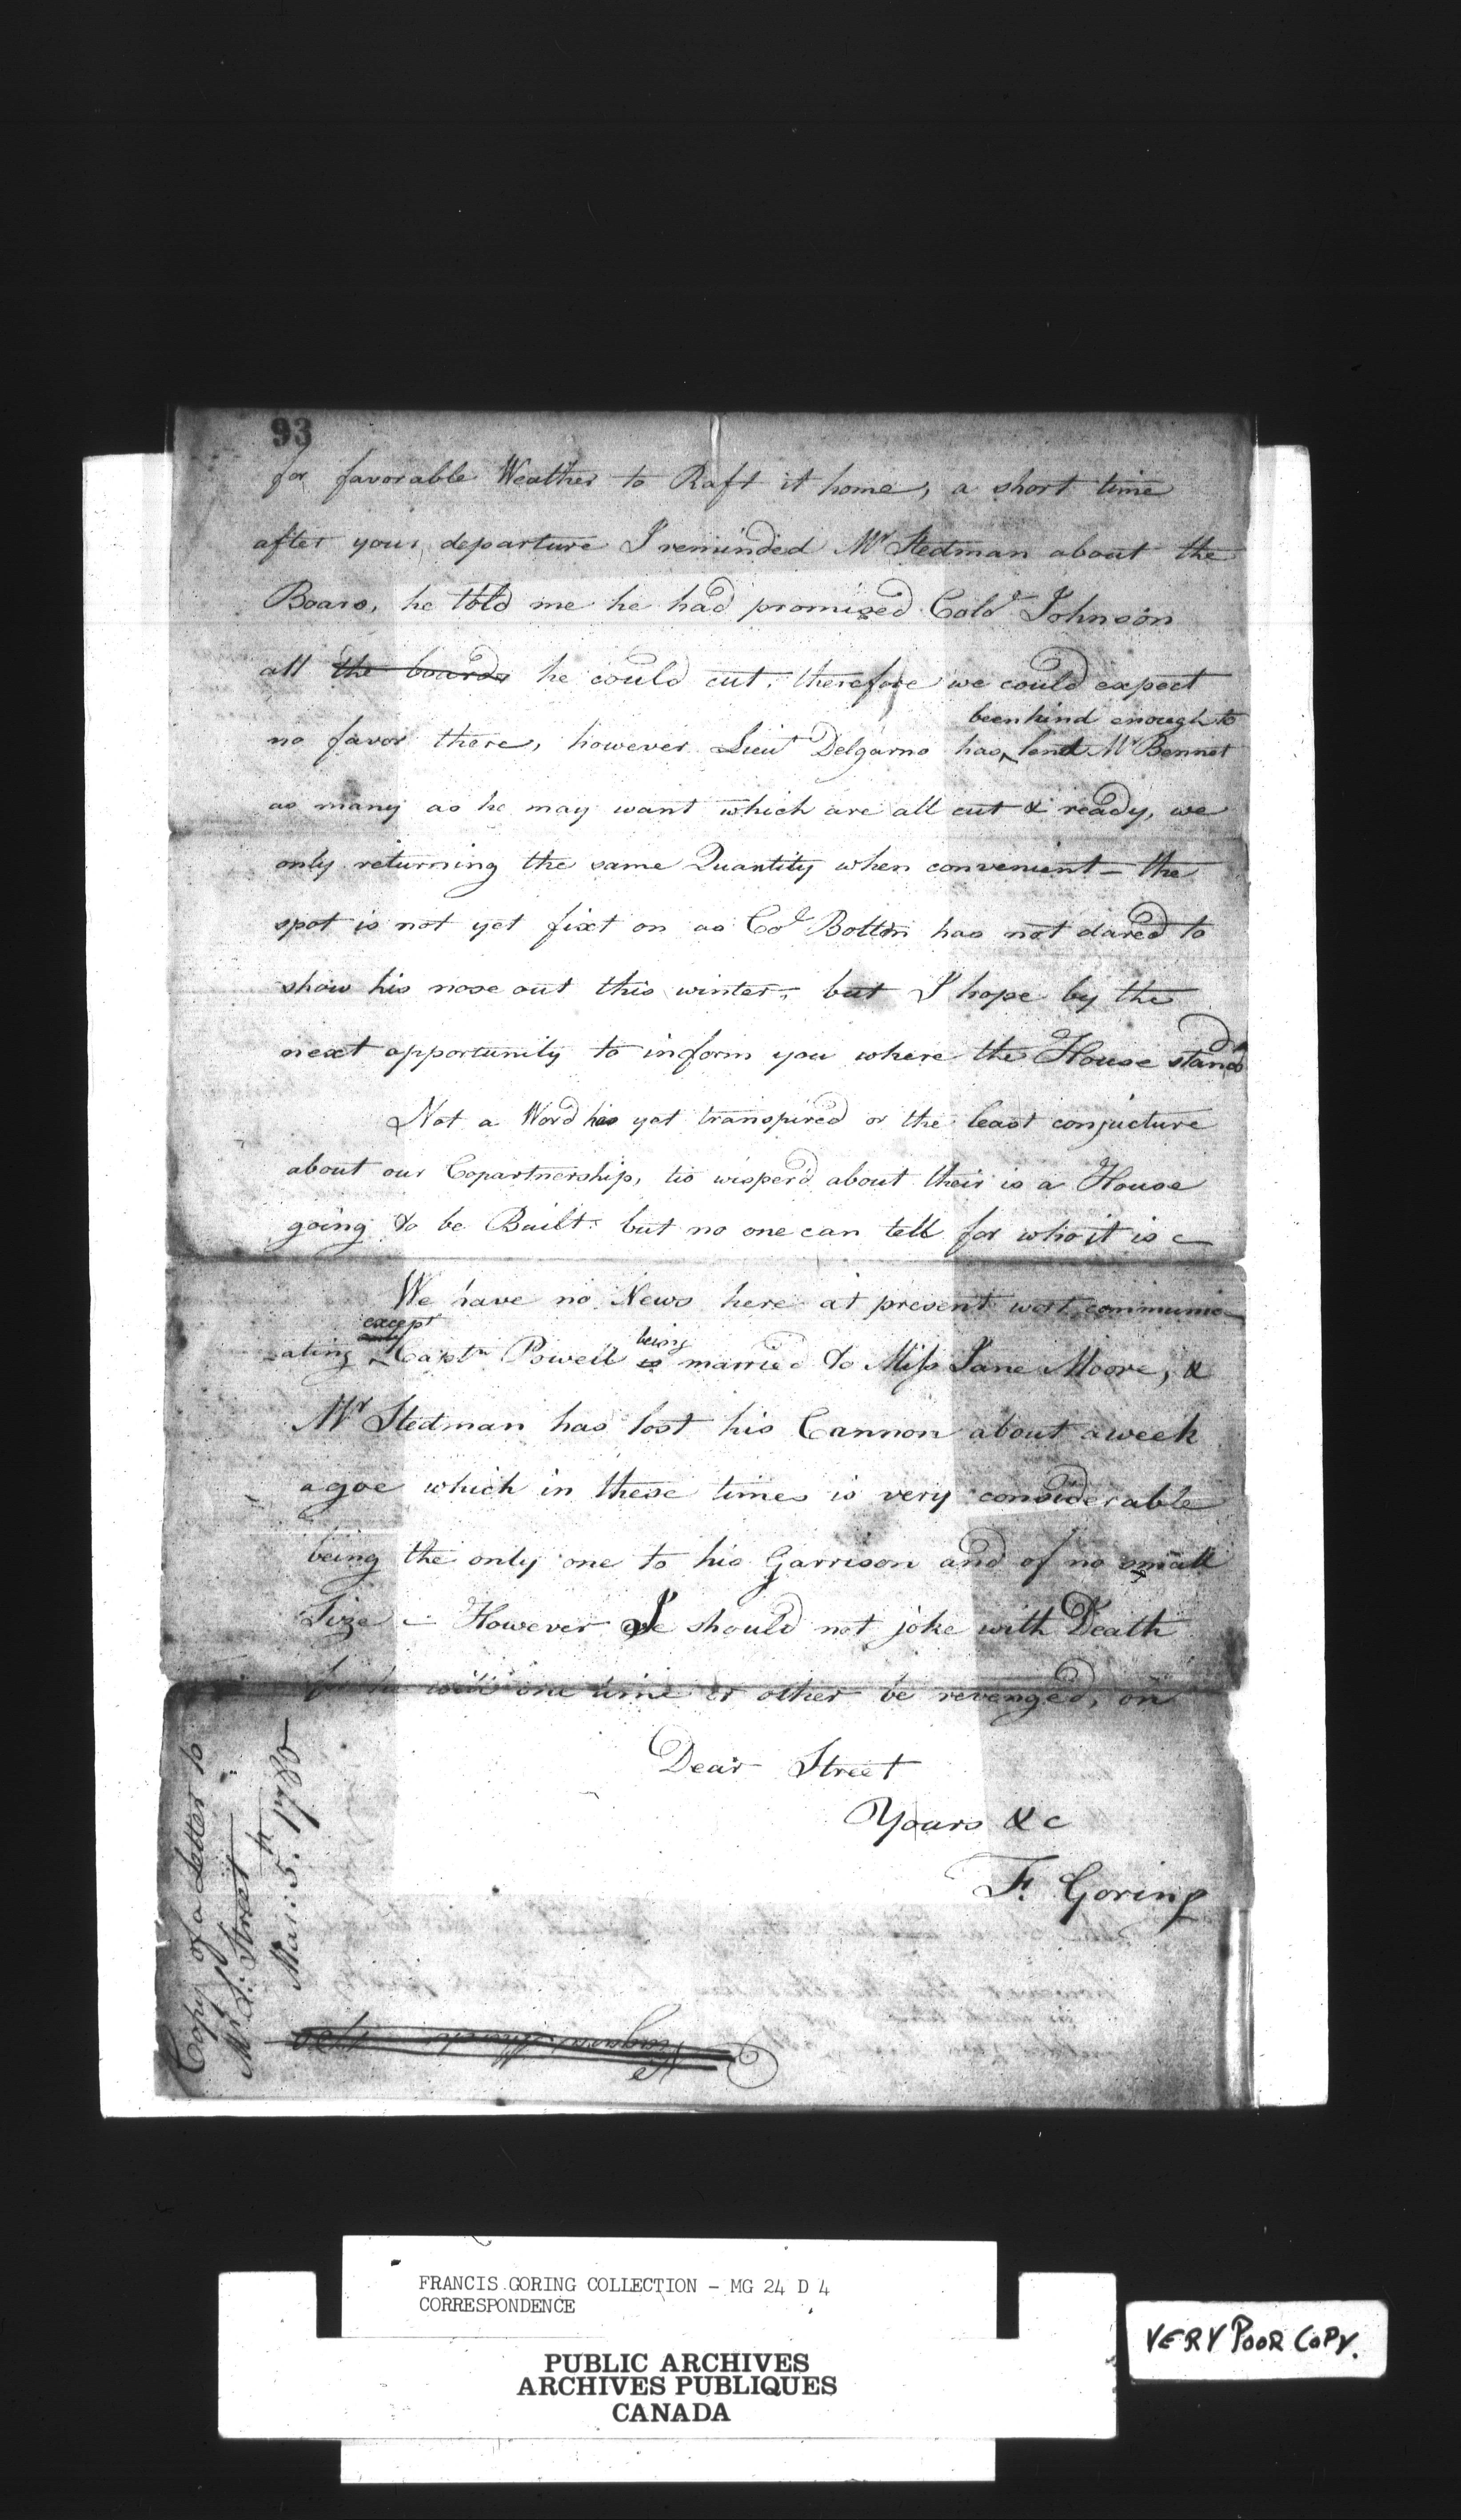 93
for favorable Weather to Raft it home, a short time
after your departure I reminded Mr Stedman about the
Board, he told me he had promised Colo Johnson
all the boards he could cut, therefore we could expect
been kind enough to
no favor there, however Lieut Delgarno has lend Mr Bennet
as many as he may want which are all cut & ready, we
only returning the same Quantity when convenient - the
spot is not yet fixt on as Col Bolton has not dared to
show his nose out this winter, but I hope by the
next opportunity to inform you where the House stands
Not a Word has yet transpired or the least conjucture
about our Copartnership, tis wisper'd about their is a House
going to be Built: but no one can tell for who it is -
We have no News here at present wort communic
except being
-ating only Captn Powell is married to Miss Jane Moore, &
Mr Stedman has lost his Cannon about a week
agoe which in these times is very considerable
being the only one to his Garrison and of no small
Size - However we should not joke with Death
will one time or other be revenged, on
Dear Street
Yours &c
F. Goring
Copy of a Letter to
Mr S: Street
Mar: 5th 1780
FRANCIS GORING COLLECTION - MG 24 D 4
CORRESPONDENCE
PUBLIC ARCHIVES
ARCHIVES PUBLIQUES
CANADA
VERY POOR COPY.